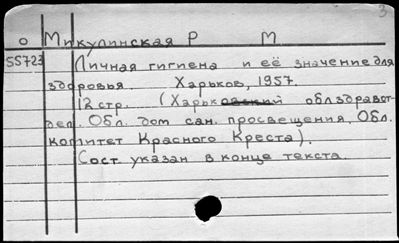 3
о Микулинская Р М
55723 Личная гигиена и её значение для
здоровья. Харьков, 1957.
12 стр. (Харьковский облздравот-
дел. Обл. дом сан. просвещения. Обл.
комитет Красного Креста).
Сост. указан в конце текста.